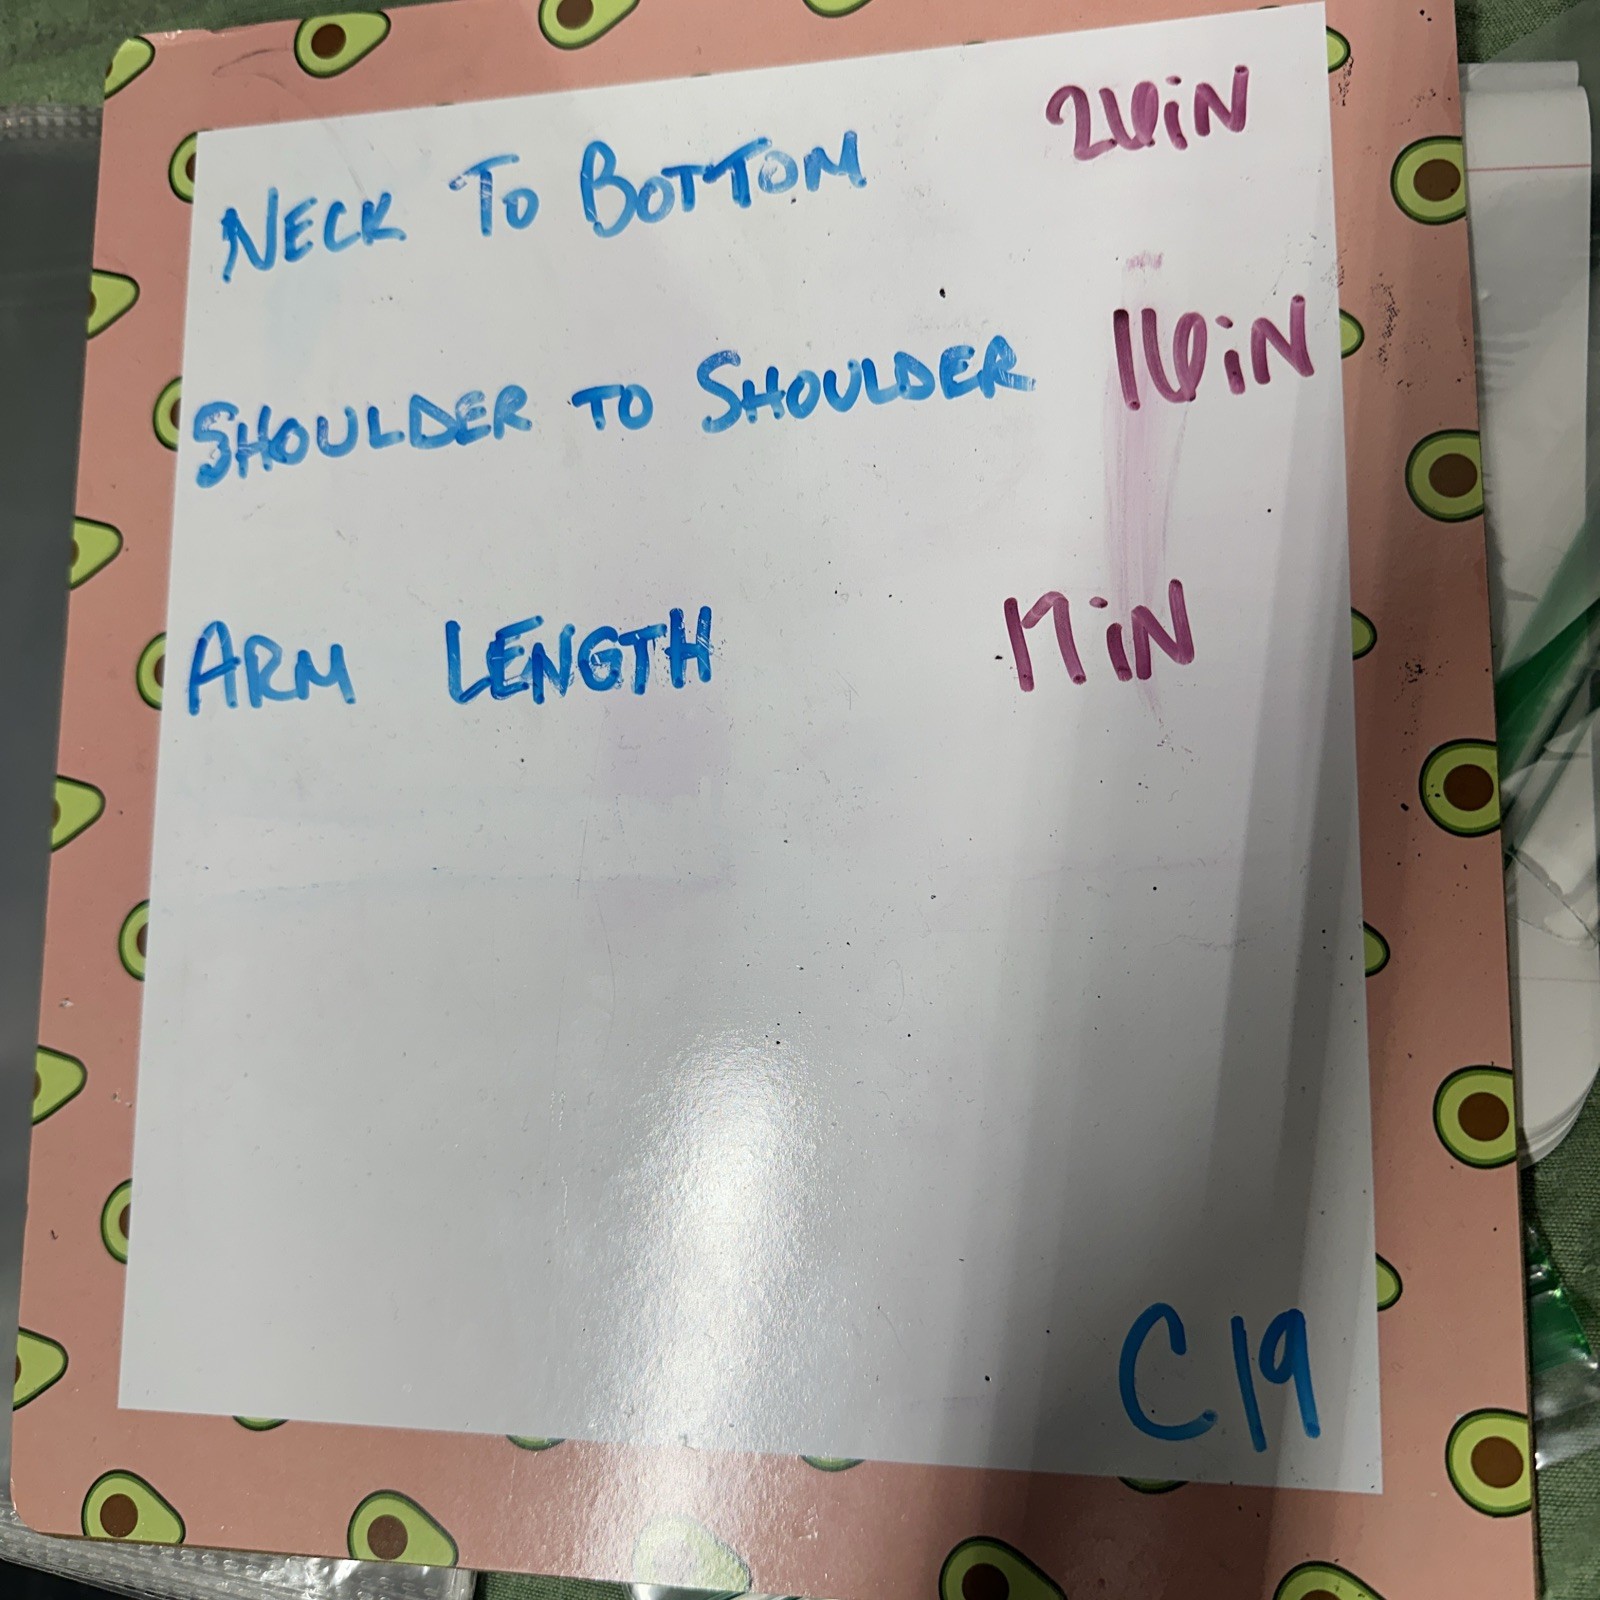 NECK TO BOTTOM 26iN
SHOULDER TO SHOULDER 16iN
ARM LENGTH 17iN
C19